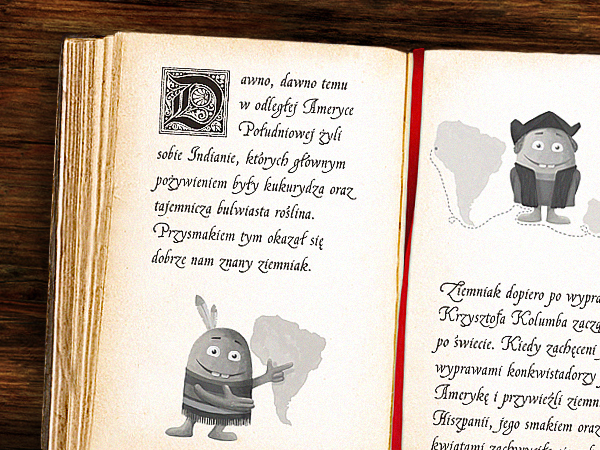 Dawno, dawno temu
w odległej Ameryce
Południowej żyli
sobie Indianie, których głównym
pożywieniem były kukurydza oraz
tajemnicza bulwiasta roślina.
Przysmakiem tym okazał się
dobrze nam znany ziemniak.
Ziemniak dopiero po
Krzysztofa Kolumba
po świecie. Kiedy zachęceni
wyprawami konkwistadorzy
Amerykę i przywieźli
Hiszpanii, jego smakiem oraz
kwiatami